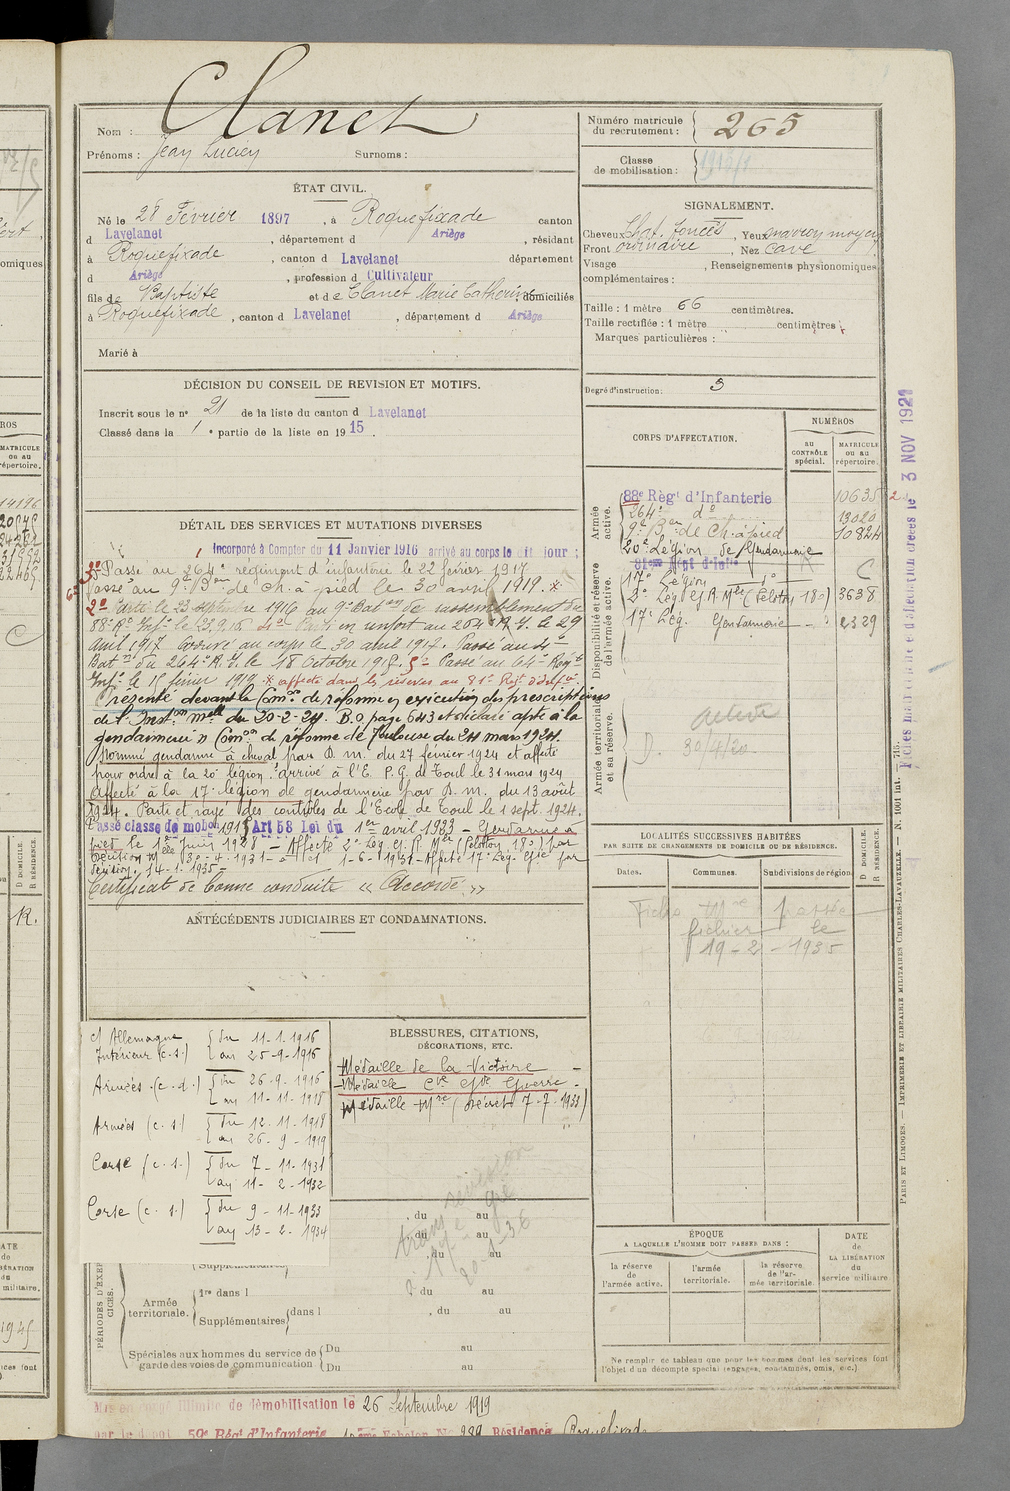 Nom : Clanet
Prénoms : Jean Lucien Surnoms :
Numéro matricule du recrutement : 265
Classe de mobilisation :
ÉTAT CIVIL.
Né le 28 Février 1897, à Roquefixade canton
d Lavelanet, département d Ariège, résidant
à Roquefixade, canton d Lavelanet département
d Ariège, profession d Cultivateur
fils de Baptiste et de Clanet Marie Catherine domiciliés
à Roquefixade, canton d Lavelanet, département d Ariège
Marié à
SIGNALEMENT.
Cheveux Chat. foncés, Yeux marron moyen
Front ordinaire, Nez cave
Visage , Renseignements physionomiques
complémentaires :
Taille : 1 mètre 66 centimètres.
Taille rectifiée : 1 mètre centimètres
Marques particulières :
Degré d'instruction : 3
DÉCISION DU CONSEIL DE REVISION ET MOTIFS.
Inscrit sous le n° 21 de la liste du canton d Lavelanet
Classé dans la 1e partie de la liste en 1915.
CORPS D'AFFECTATION.
NUMÉROS
AU CONTRÔLE spécial.
MATRICULE ou au répertoire.
Armée active.
88e Régt d'Infanterie 10635
264e do 13020
9e Bon de Ch. à pied 10824
20e Légion de Gendarmerie
Disponibilité et réserve de l'armée active.
81eme Régt d'Infie
17e Légion do C
2e Lég. G R Mle (Peloton 180) 3638
17e Lég. Gendarmerie 2329
Armée territoriale et sa réserve.
Fiches matricule et d'affectation créées le 3 NOV 1921
DÉTAIL DES SERVICES ET MUTATIONS DIVERSES
Incorporé à Compter du 11 Janvier 1916 arrivé au corps le dit jour ;
3° Passé au 264e régiment d'infanterie le 22 février 1917
Passé au 9e Bon de Ch. à pied le 30 avril 1919. *
2° Parti le 23 septembre 1916 au 9e Baton de rassemblement du
88e Rt Infie le 23.9.16 4° Parti en renfort au 264e R.I. le 29
avril 1917 Arrivé au corps le 30 avril 1917. Passé au 4e
Batn du 264e R.I. le 18 Octobre 1918. 5° Passé au 64e Régt
Infie le 15 février 1919. * affecté dans les réserves au 81e Régt d'Infie
Présenté devant la Comon de réforme en exécution des prescriptions
de l'Inston mlle du 20-2-24. B.O. page 643 et déclaré apte à la
gendarmerie Comon de réforme de Toulouse du 24 mars 1924.
Nommé gendarme à cheval par D. m. du 27 février 1924 et affecté
pour ordre à la 20e légion. Arrivé à l'E. P. G. de Toul le 31 mars 1924
Affecté à la 17e légion de gendarmerie par D. m. du 13 août
1924. Parti et rayé des contrôles de l'Ecole de Toul le 1 sept. 1924.
Passé classe de mobon 1913 Art 58 Loi du 1er avril 1923 - Gendarme à
pied le 1er juin 1928 - Affecté 2e Lég. G. R. Mle (Peloton 180) par
Décision Mlle 30-4-1931 1-6-1931 - Affecté 17e Lég. Gie par
décision 14-1-1935 -
Certificat de bonne conduite « Accordé »
LOCALITÉS SUCCESSIVES HABITÉES
PAR SUITE DE CHANGEMENTS DE DOMICILE OU DE RÉSIDENCE.
Dates. Communes. Subdivisions de région.
D DOMICILE. R RÉSIDENCE.
Fiche Mre passée
fichier le
19-2-1935
ANTÉCÉDENTS JUDICIAIRES ET CONDAMNATIONS.
c/ Allemagne
Intérieur (c.s.) du 11-1-1916
au 25-9-1916
Armées (c.d.) du 26-9-1916
au 11-11-1918
Armées (c.s.) du 12-11-1918
au 26-9-1919
Corse (c.s.) du 7-11-1931
au 11-2-1932
Corse (c.s.) du 9-11-1933
au 13-2-1934
BLESSURES, CITATIONS,
DÉCORATIONS, ETC.
Médaille de la Victoire
Médaille Cve Gde Guerre
Médaille Mre (décret 7-7-1933)
du au
du au
du au
PÉRIODES D'EXERCICES.
Supplémentaires
Armée territoriale.
1re dans l du au
Supplémentaires dans l , du au
Spéciales aux hommes du service de garde des voies de communication
Du au
Du au
ÉPOQUE
A LAQUELLE L'HOMME DOIT PASSER DANS :
la réserve de l'armée active.
l'armée territoriale.
la réserve de l'armée territoriale.
DATE de LA LIBÉRATION du service militaire
Ne remplir ce tableau que pour les hommes dont les services font
l'objet d'un décompte spécial (engagés, condamnés, omis, etc.)
PARIS ET LIMOGES. — IMPRIMERIE ET LIBRAIRIE MILITAIRES CHARLES-LAVAUZELLE.
Mis en congé illimité de démobilisation le 26 Septembre 1919
par le dépôt 59e Régt d'Infanterie Echelon N° Résidence Roquefixade